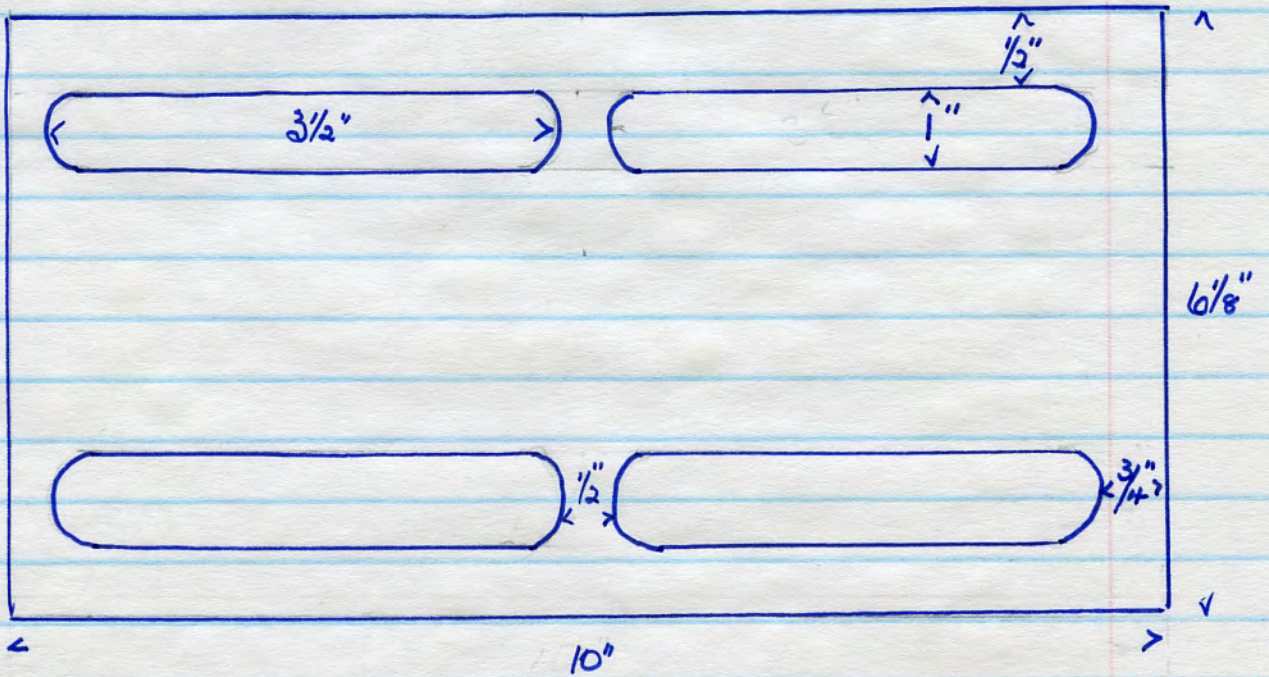 1/2"
3 1/2"
1"
6 1/8"
1/2"
3/4"
10"